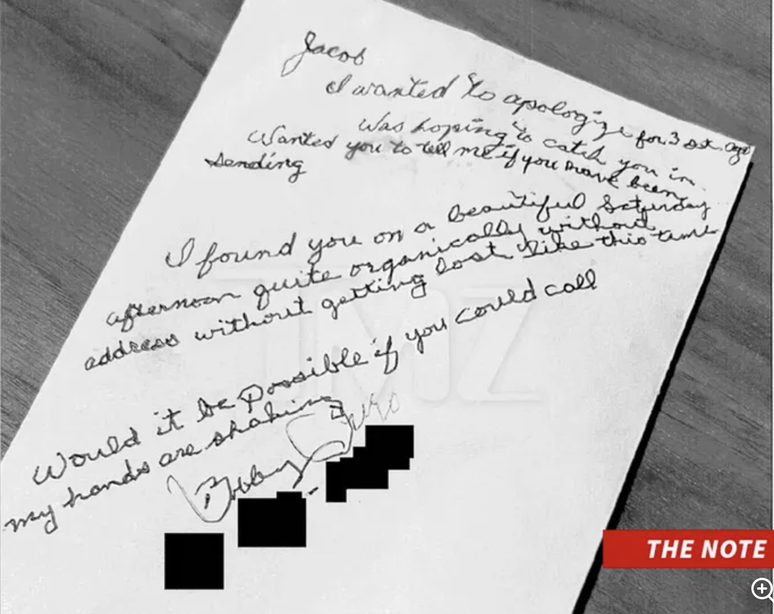 Jacob
I wanted to apologize for 3 sat. ago
Was hoping to catch you in.
Wanted you to tell me if you have been
sending
I found you on a beautiful Saturday
afternoon quite organically without
address without getting lost like this time
Would it be possible if you could call
my hands are shaking
Bobby
TMZ
THE NOTE